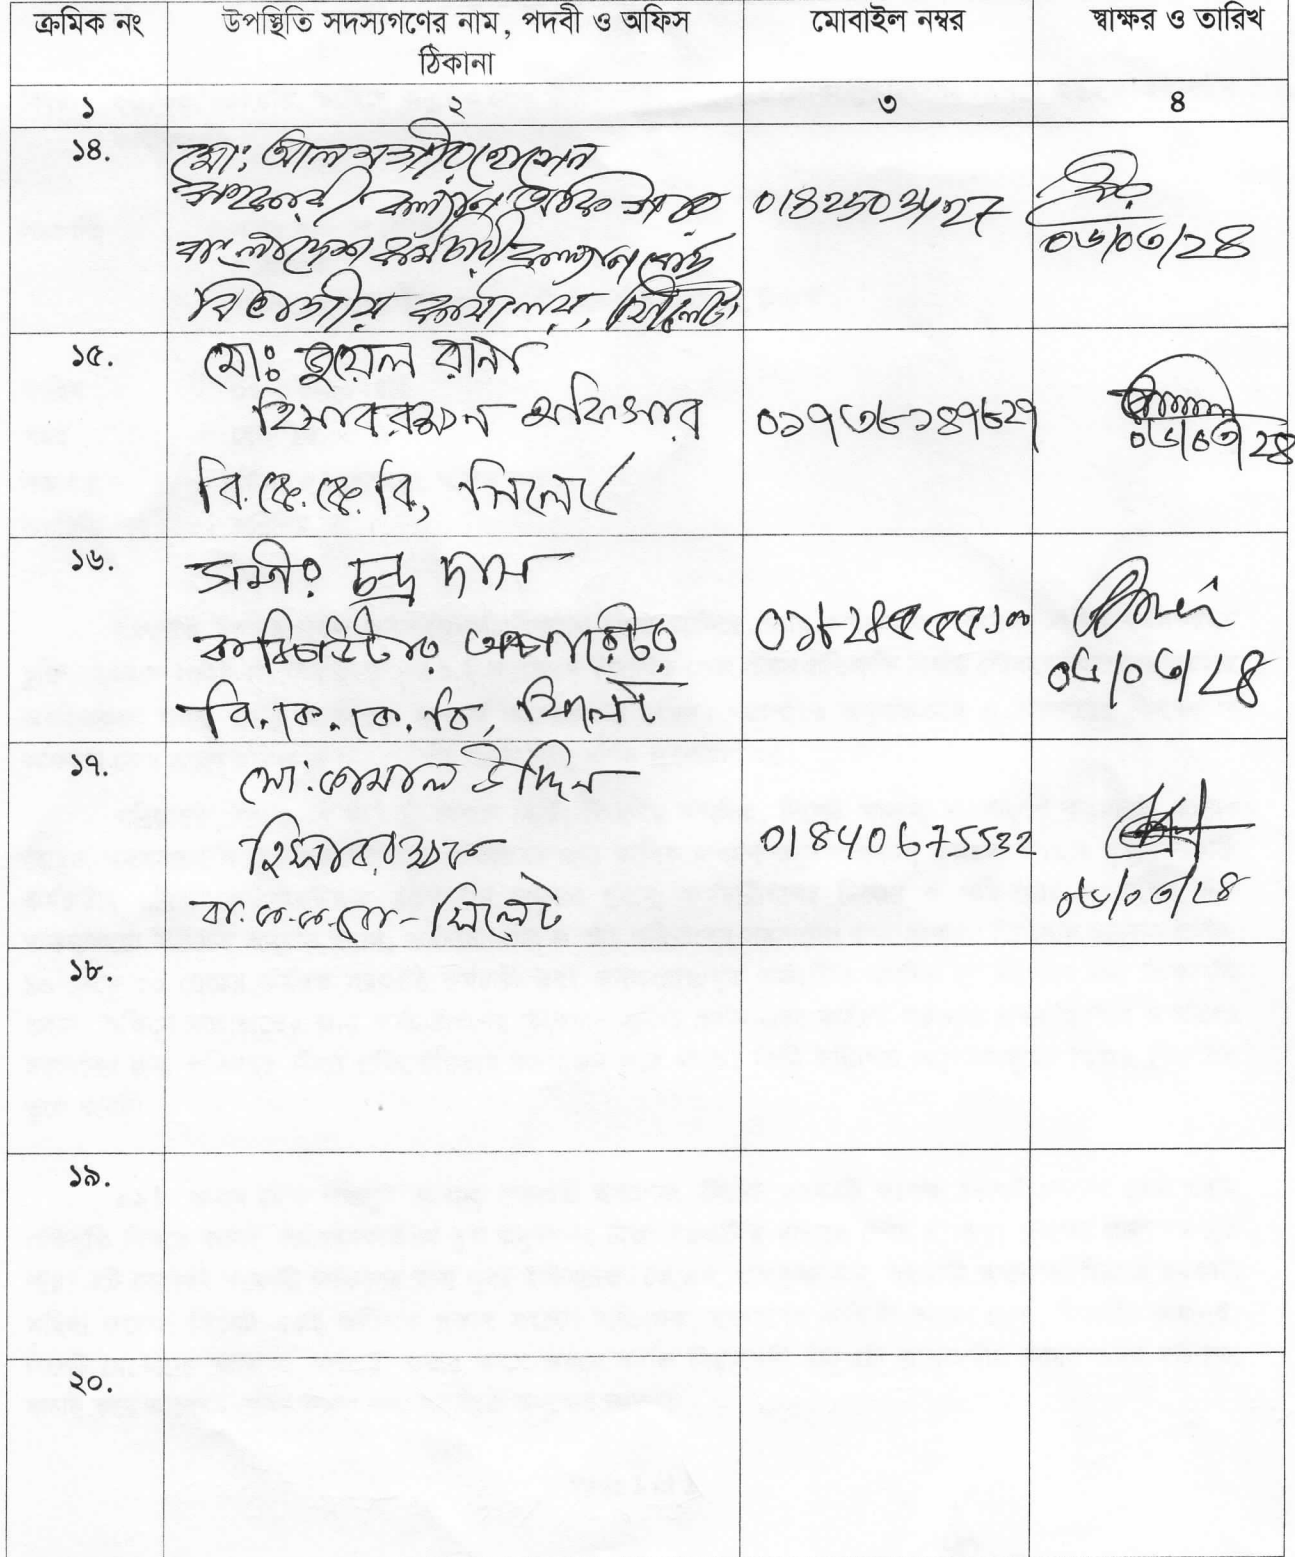 ক্রমিক নং উপস্থিতি সদস্যগণের নাম, পদবী ও অফিস ঠিকানা মোবাইল নম্বর স্বাক্ষর ও তারিখ
১ ২ ৩ ৪
১৪. মো: আলমগীর হোসেন
সহকারী কল্যাণ অফিসার
বাংলাদেশ কর্মচারী কল্যাণ বোর্ড
বিভাগীয় কার্যালয়, সিলেট।
০৬/০৩/২৪
১৫. মোঃ জুয়েল রানা
হিসাবরক্ষণ অফিসার
বি.কে.কে.বি, সিলেট
০৬/০৩/২৪
১৬. সমীর চন্দ্র দাস
কম্পিউটার অপারেটর
বি.কে.কে.বি, সিলেট
০৬/০৩/২৪
১৭. মো: কামাল উদ্দিন
হিসাবরক্ষক
বা.ক.ক.বো-সিলেট
01840675532
০৬/০৩/২৪
১৮.
১৯.
২০.